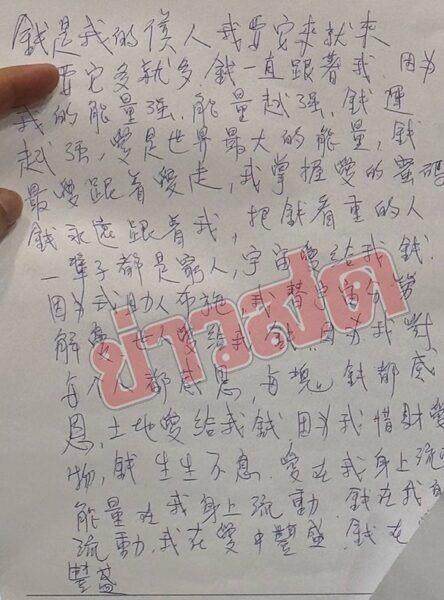 錢是我的僕人我要它來就來
要它多就多錢一直跟著我,因为
我的能量强,能量越强,錢運
越强,愛是世界最大的能量,錢
最愛跟着愛走,我掌握愛的密碼
錢永遠跟着我,把錢看重的人
一輩子都是窮人,宇宙愛給我錢.
因为我助人布施,我替宇宙分勞
解憂.七人愛給我錢.因为我對
每个人都感恩,每塊錢都感
恩,土地愛給我錢因为我惜財愛
物,錢生生不息.愛在我身上流
能量在我身上流動.錢在我身
流動.我在愛中豐盛.錢在
豐盛
ข่าวสด